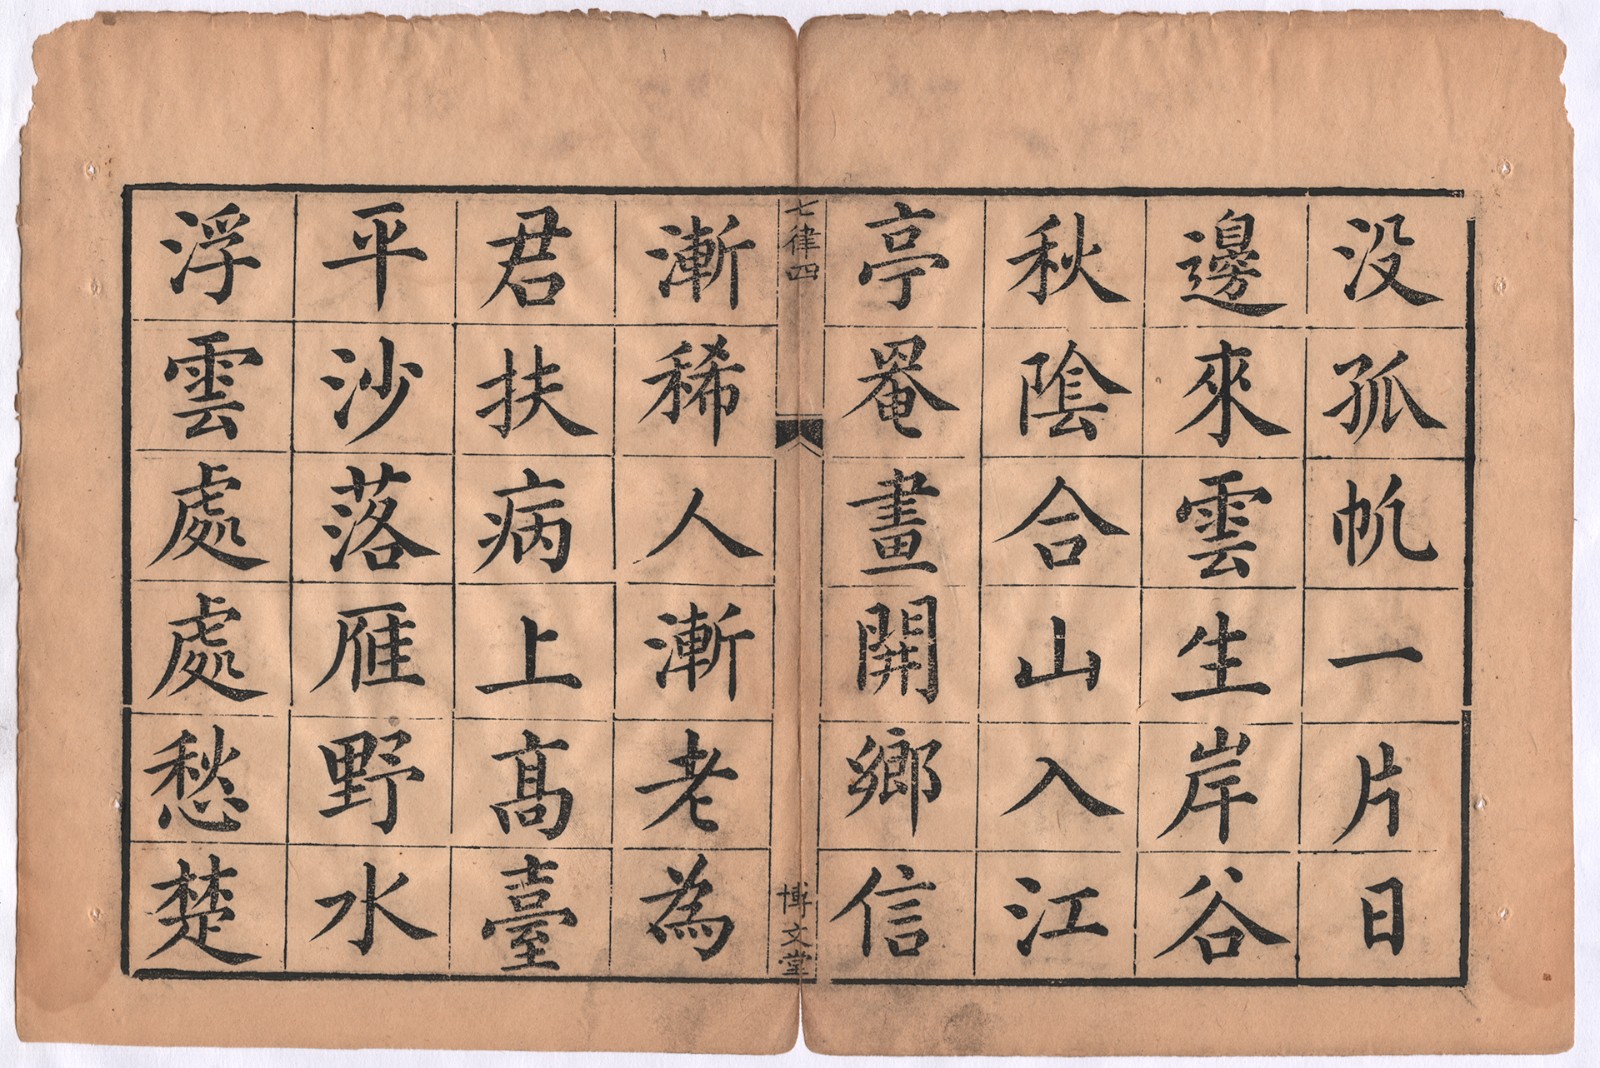 没孤帆一片日
邊來雲生岸谷
秋陰合山入江
亭罨畫開鄉信
七律四
博文堂
漸稀人漸老為
君扶病上高臺
平沙落雁野水
浮雲處處愁楚